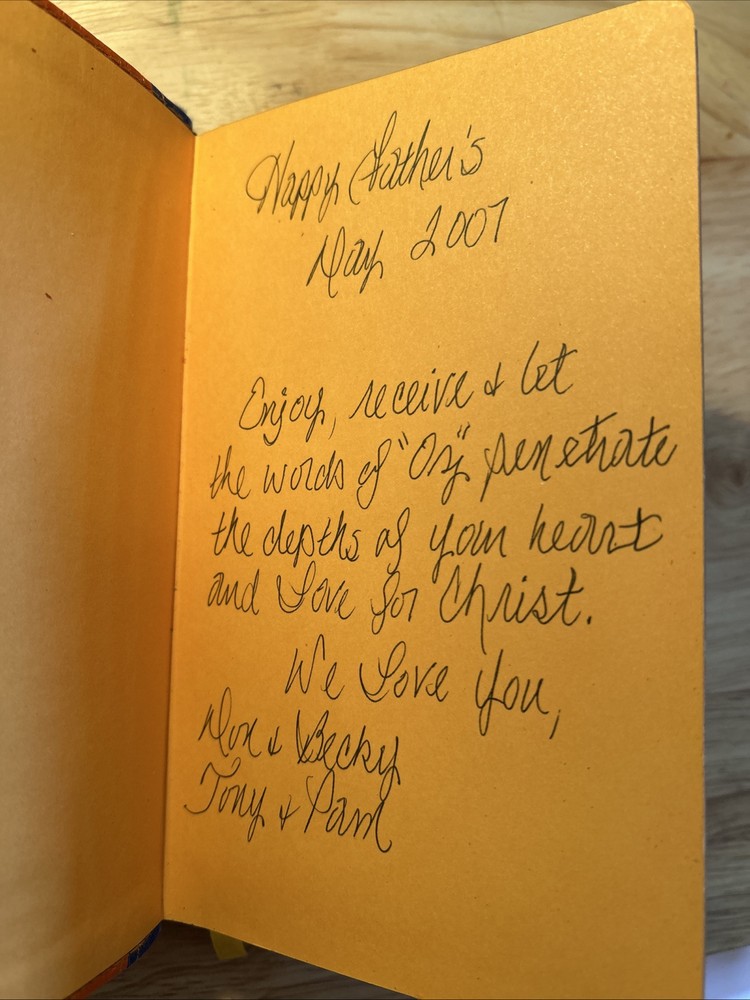 Happy Father's
Day 2007
Enjoy, receive & let
the words of "Oz" penetrate
the depths of your heart
and Love for Christ.
We Love You,
Don & Becky
Tony & Pam